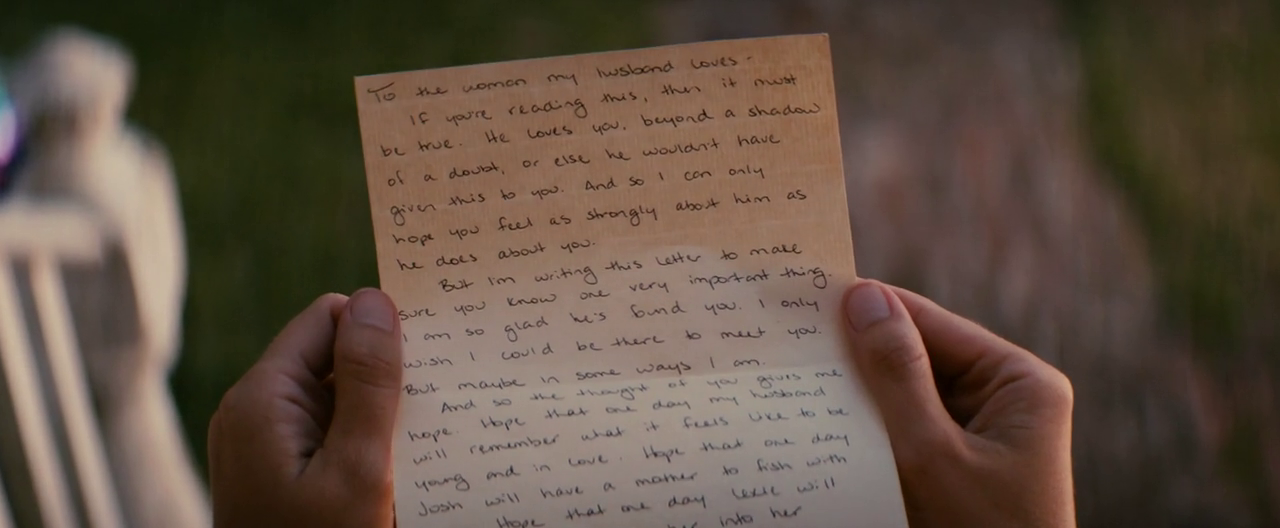 To the woman my husband loves -
If you're reading this, then it must
be true. He loves you, beyond a shadow
of a doubt, or else he wouldn't have
given this to you. And so I can only
hope you feel as strongly about him as
he does about you.
But I'm writing this letter to make
sure you know one very important thing.
I am so glad he's found you. I only
wish I could be there to meet you.
But maybe in some ways I am.
And so the thought of you gives me
hope. Hope that one day my husband
will remember what it feels like to be
young and in love. Hope that one day
Josh will have a mother to fish with
Hope that one day Lexie will
her into her